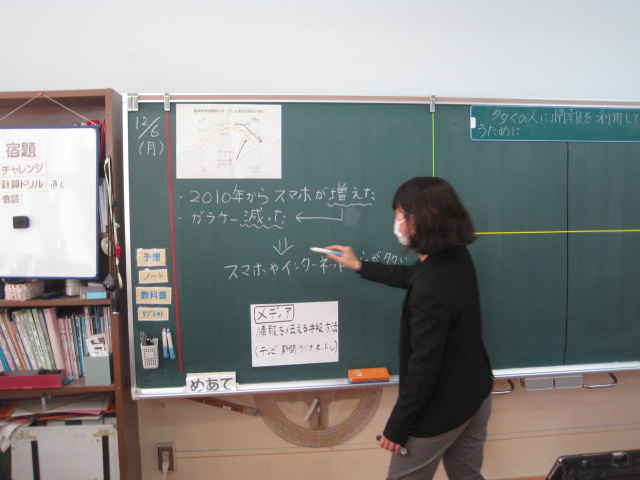 宿題
チャレンジ
計算ドリル
音読
12/6
(月)
・2010年からスマホが増えた
・ガラケー減った
スマホやインターネット
予想
ノート
教科書
タブレット
メディア
情報を伝える手段・方法
(テレビ・新聞・ラジオ・ネット
めあて
多くの人に情報を利用して
うために